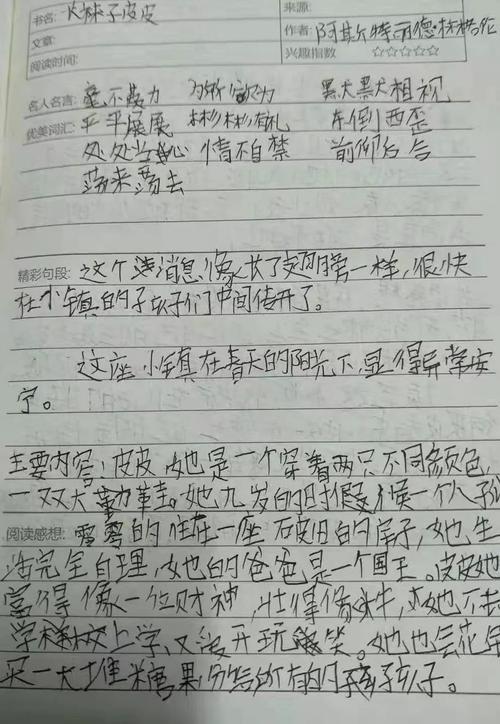 书名: 长袜子皮皮 来源:
作者: 阿斯特丽德·林格伦
文章:
兴趣指数 ☆☆☆☆☆
阅读时间:
名人名言: 毫不费力 默默相视
优美词汇: 平平展展 彬彬有礼 东倒西歪
处处当心 情不自禁 前仰后合
荡来荡去
精彩句段: 这个消息像长了翅膀一样,很快
在小镇的孩子们中间传开了。
这座小镇在春天的阳光下,显得异常安
宁。
主要内容: 皮皮她是一个穿着两只不同颜色,
一双大鞋。她九岁的时候一个人孤
阅读感想: 零零的住在一座破旧的房子,她生
活完全自理,她的爸爸是一个国王。皮皮她
富得像一位财神,壮得像牛,她不去
学校上学,又没开玩笑。她也会花
买一大堆糖果分给所有的孩子。